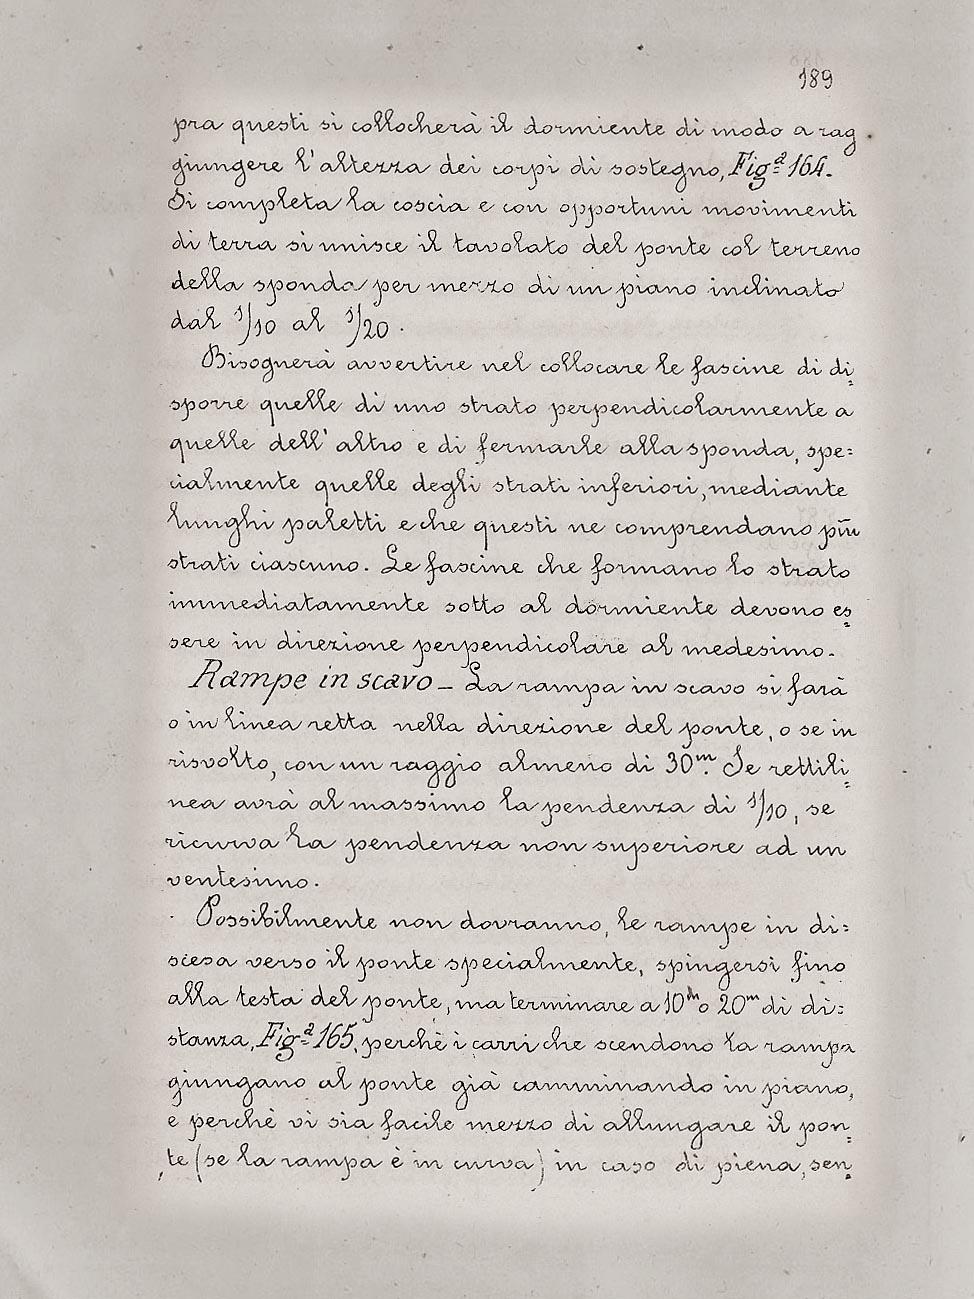 189
pra questi si collocherà il dormiente di modo a rag
giungere l'altezza dei corpi di sostegno, Figª 164.
Si completa la coscia e con opportuni movimenti
di terra si unisce il tavolato del ponte col terreno
della sponda per mezzo di un piano inclinato
dal 1/10 al 1/20.
Bisognerà avvertire nel collocare le fascine di di=
sporre quelle di uno strato perpendicolarmente a
quelle dell'altro e di fermarle alla sponda, spe=
cialmente quelle degli strati inferiori, mediante
lunghi paletti e che questi ne comprendano più
strati ciascuno. Le fascine che formano lo strato
immediatamente sotto al dormiente devono es=
sere in direzione perpendicolare al medesimo.
Rampe in scavo - La rampa in scavo si farà
o in linea retta nella direzione del ponte, o se in
risvolto, con un raggio almeno di 30m. Se rettili=
nea avrà al massimo la pendenza di 1/10, se
ricurva la pendenza non superiore ad un
ventesimo.
Possibilmente non dovranno, le rampe in di=
scesa verso il ponte specialmente, spingersi fino
alla testa del ponte, ma terminare a 10m o 20m di di=
stanza, Figª 165, perchè i carri che scendono la rampa
giungano al ponte già camminando in piano,
e perchè vi sia facile mezzo di allungare il pon=
te (se la rampa è in curva) in caso di piena, sen=